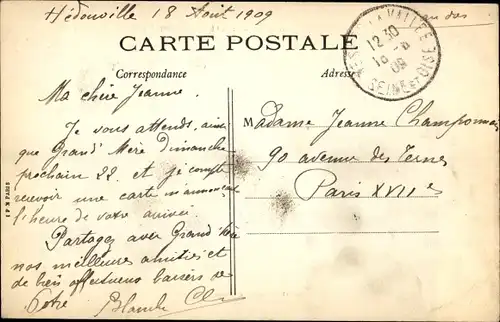 Hédouville 18 Août 1909
au dos
CARTE POSTALE
Correspondance
Adresse
LA VALLÉE
12 30
18 - 8
09
SEINE ET OISE
Ma chère Jeanne.
Je vous attends, ainsi
que Grand' Mère Dimanche
prochain 22. et je compte
recevoir une carte m'annonçant
l'heure de votre arrivée
Partagez avec Grand' Mère
nos meilleures amitiés et
de biens affectueux baisers de
Votre
Blanche
Madame Jeanne Champonnois
90 avenue des Ternes
Paris XVIIe
I P M PARIS